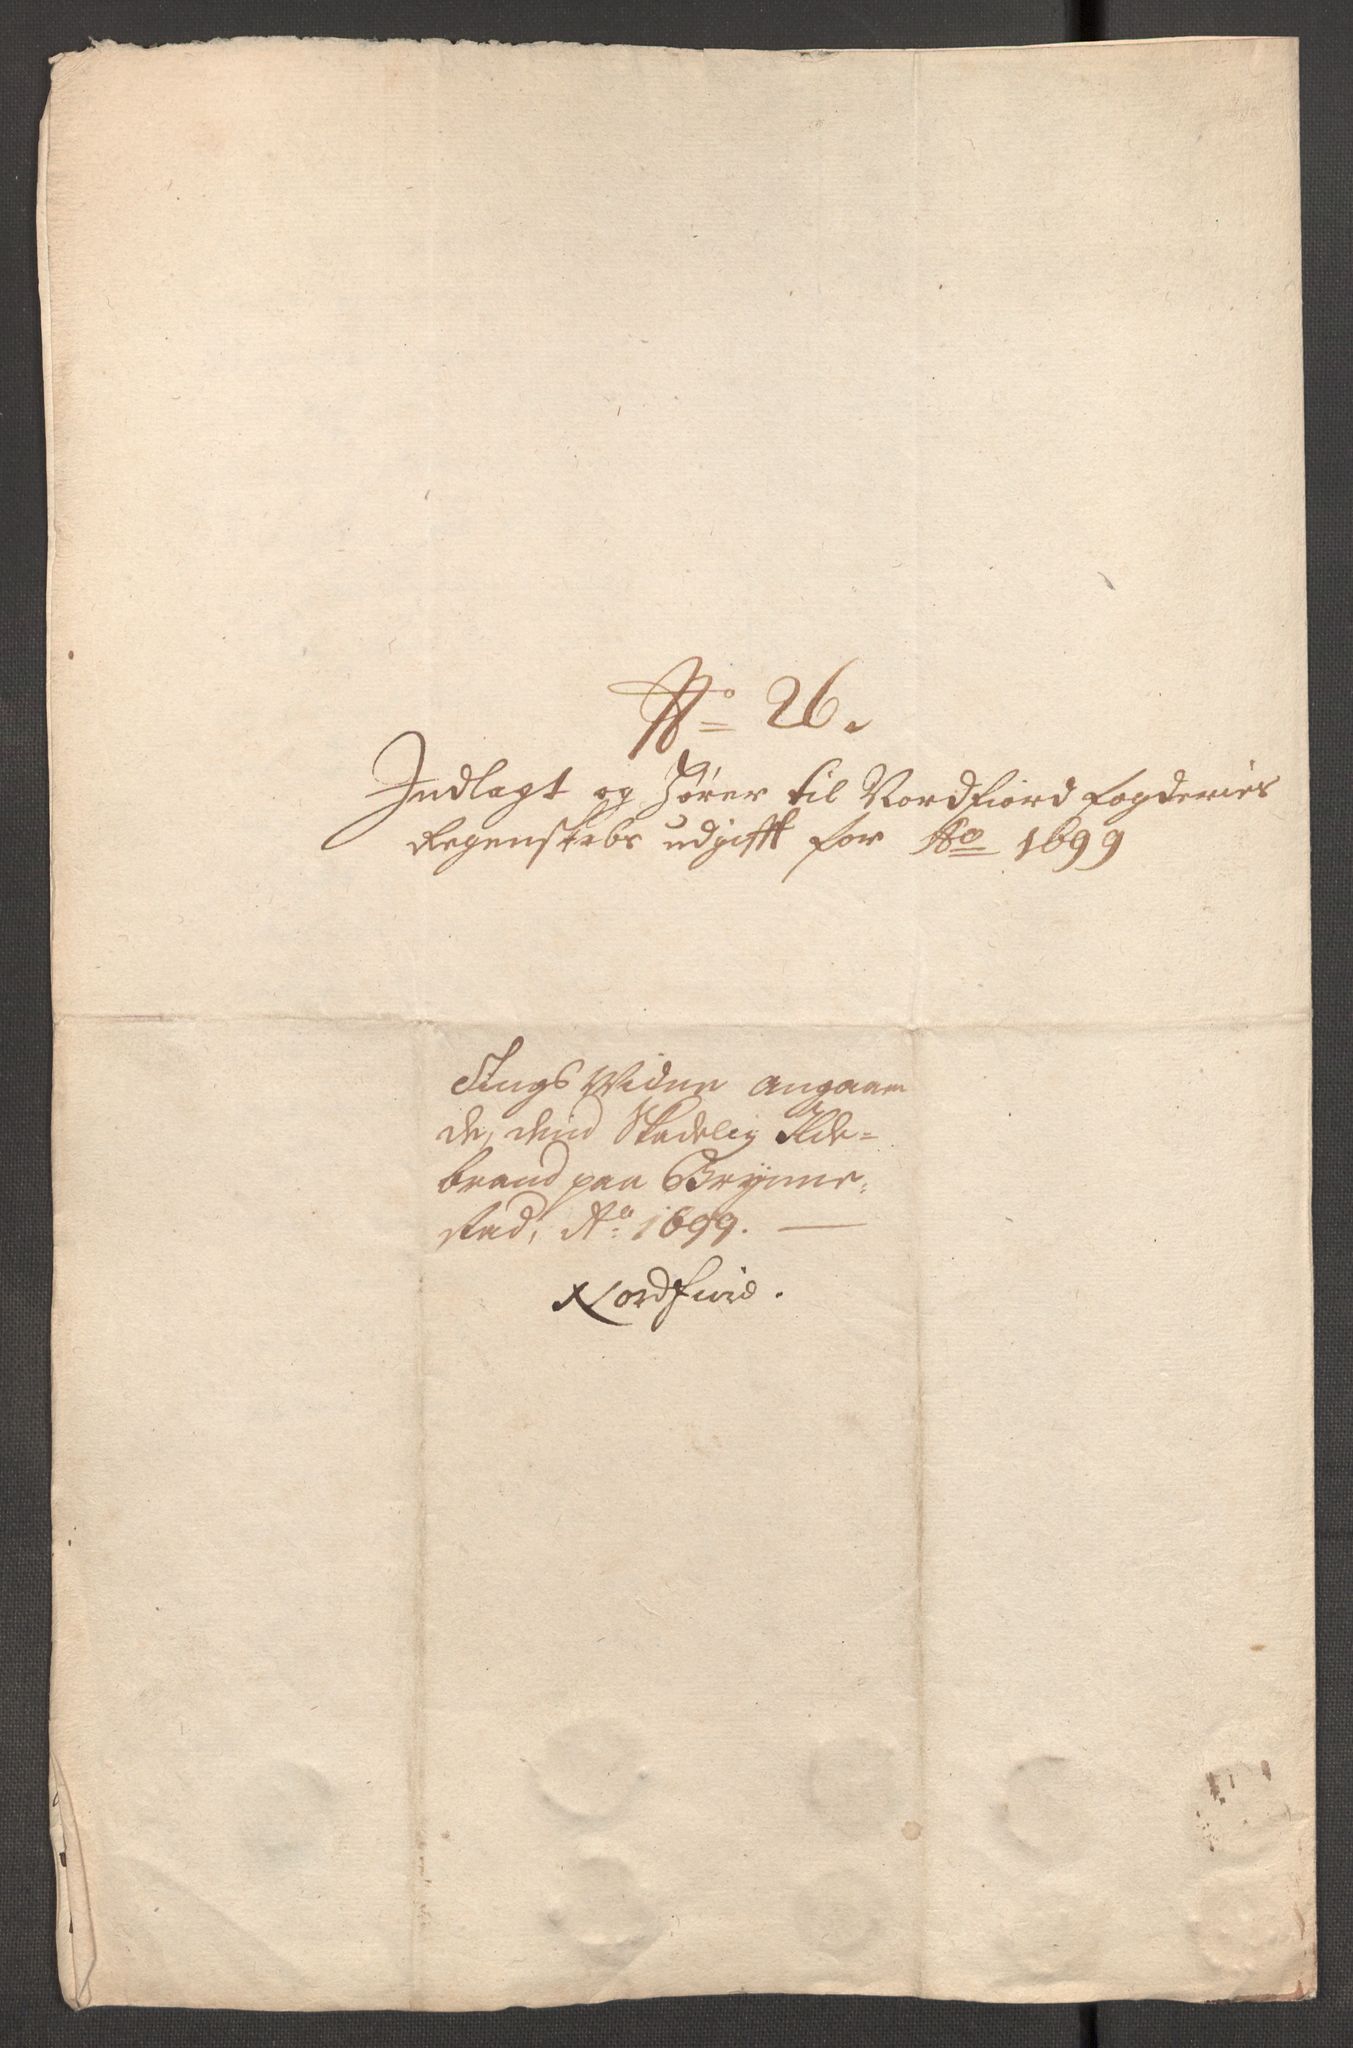 No 26.
Indlagt og hører til Nordfiord fogderies
Regenskabs udgifft for Ao 1699
Tings Widne angaaen
de, deind Skadelig Ilde=
brand paa Brynne=
stad, Ao 1699.
Nordfiord.